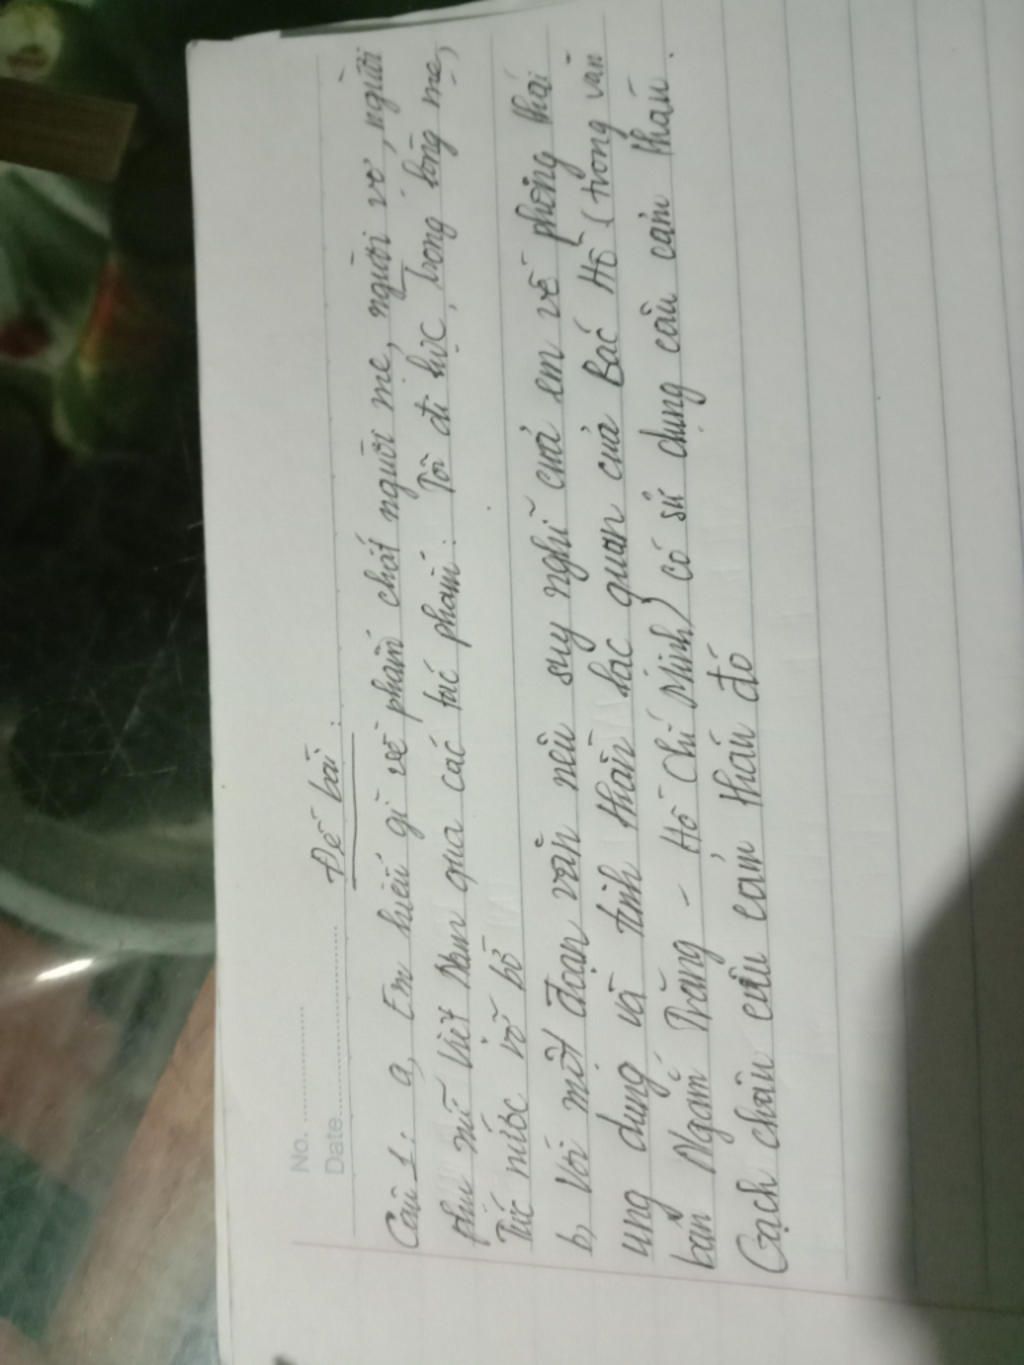 No. ..................
Date..............................
Đề bài :
Câu 1: a, Em hiểu gì về phẩm chất người mẹ, người vợ, người
phụ nữ Việt Nam qua các tác phẩm: Tôi đi học, Trong lòng mẹ,
Tức nước vỡ bờ
b, Với một đoạn văn nêu suy nghĩ của em về phong thái
ung dung và tinh thần lạc quan của Bác Hồ (trong văn
bản Ngắm Trăng - Hồ Chí Minh) có sử dụng câu cảm thán.
Gạch chân câu cảm thán đó